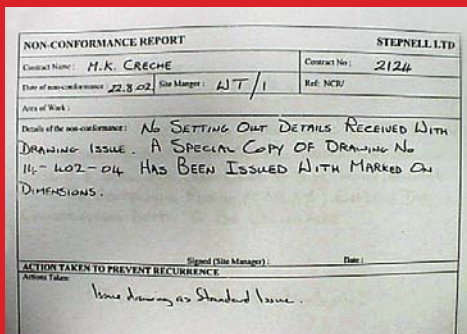 NON-CONFORMANCE REPORT STEPNELL LTD
Contract Name : M.K. CRECHE Contract No : 2124
Date of non-conformance : 22.8.02 Site Manger : WT/1 Ref: NCR/
Area of Work :
Details of the non-conformance : NO SETTING OUT DETAILS RECEIVED WITH
DRAWING ISSUE. A SPECIAL COPY OF DRAWING NO
402-04 HAS BEEN ISSUED WITH MARKED ON
DIMENSIONS.
Signed (Site Manager) : Date :
ACTION TAKEN TO PREVENT RECURRENCE
Actions Taken:
Issue drawing as Standard Issue.